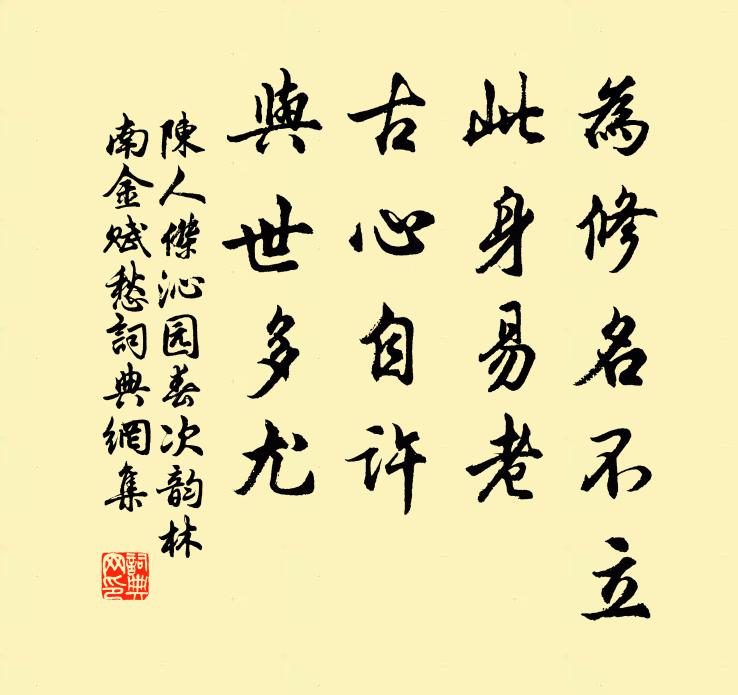 為修名不立
此身易老
古心自許
與世多尤
陳人傑沁园春次韵林
南金赋愁詞典網集
詞典
网印